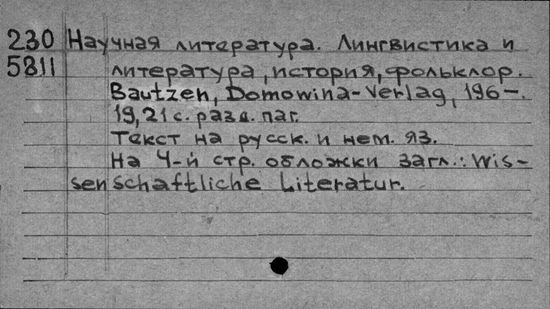 230 Научная литература. Лингвистика и
5811 литература, история, фольклор.
Bautzen, Domowina-Verlag, 196-.
19, 21 с. разд. паг.
Текст на русск. и нем. яз.
На 4-й стр. обложки загл.: Wis-
senschaftliche Literatur.